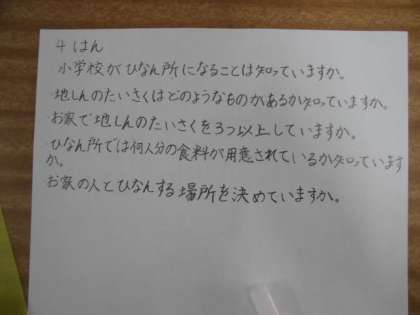 4 はん
小学校がひなん所になることは知っていますか。
・地しんのたいさくはどのようなものがあるか知っていますか。
お家で地しんのたいさくを3つ以上していますか。
・ひなん所では何人分の食料が用意されているか知っています
か。
お家の人とひなんする場所を決めていますか。